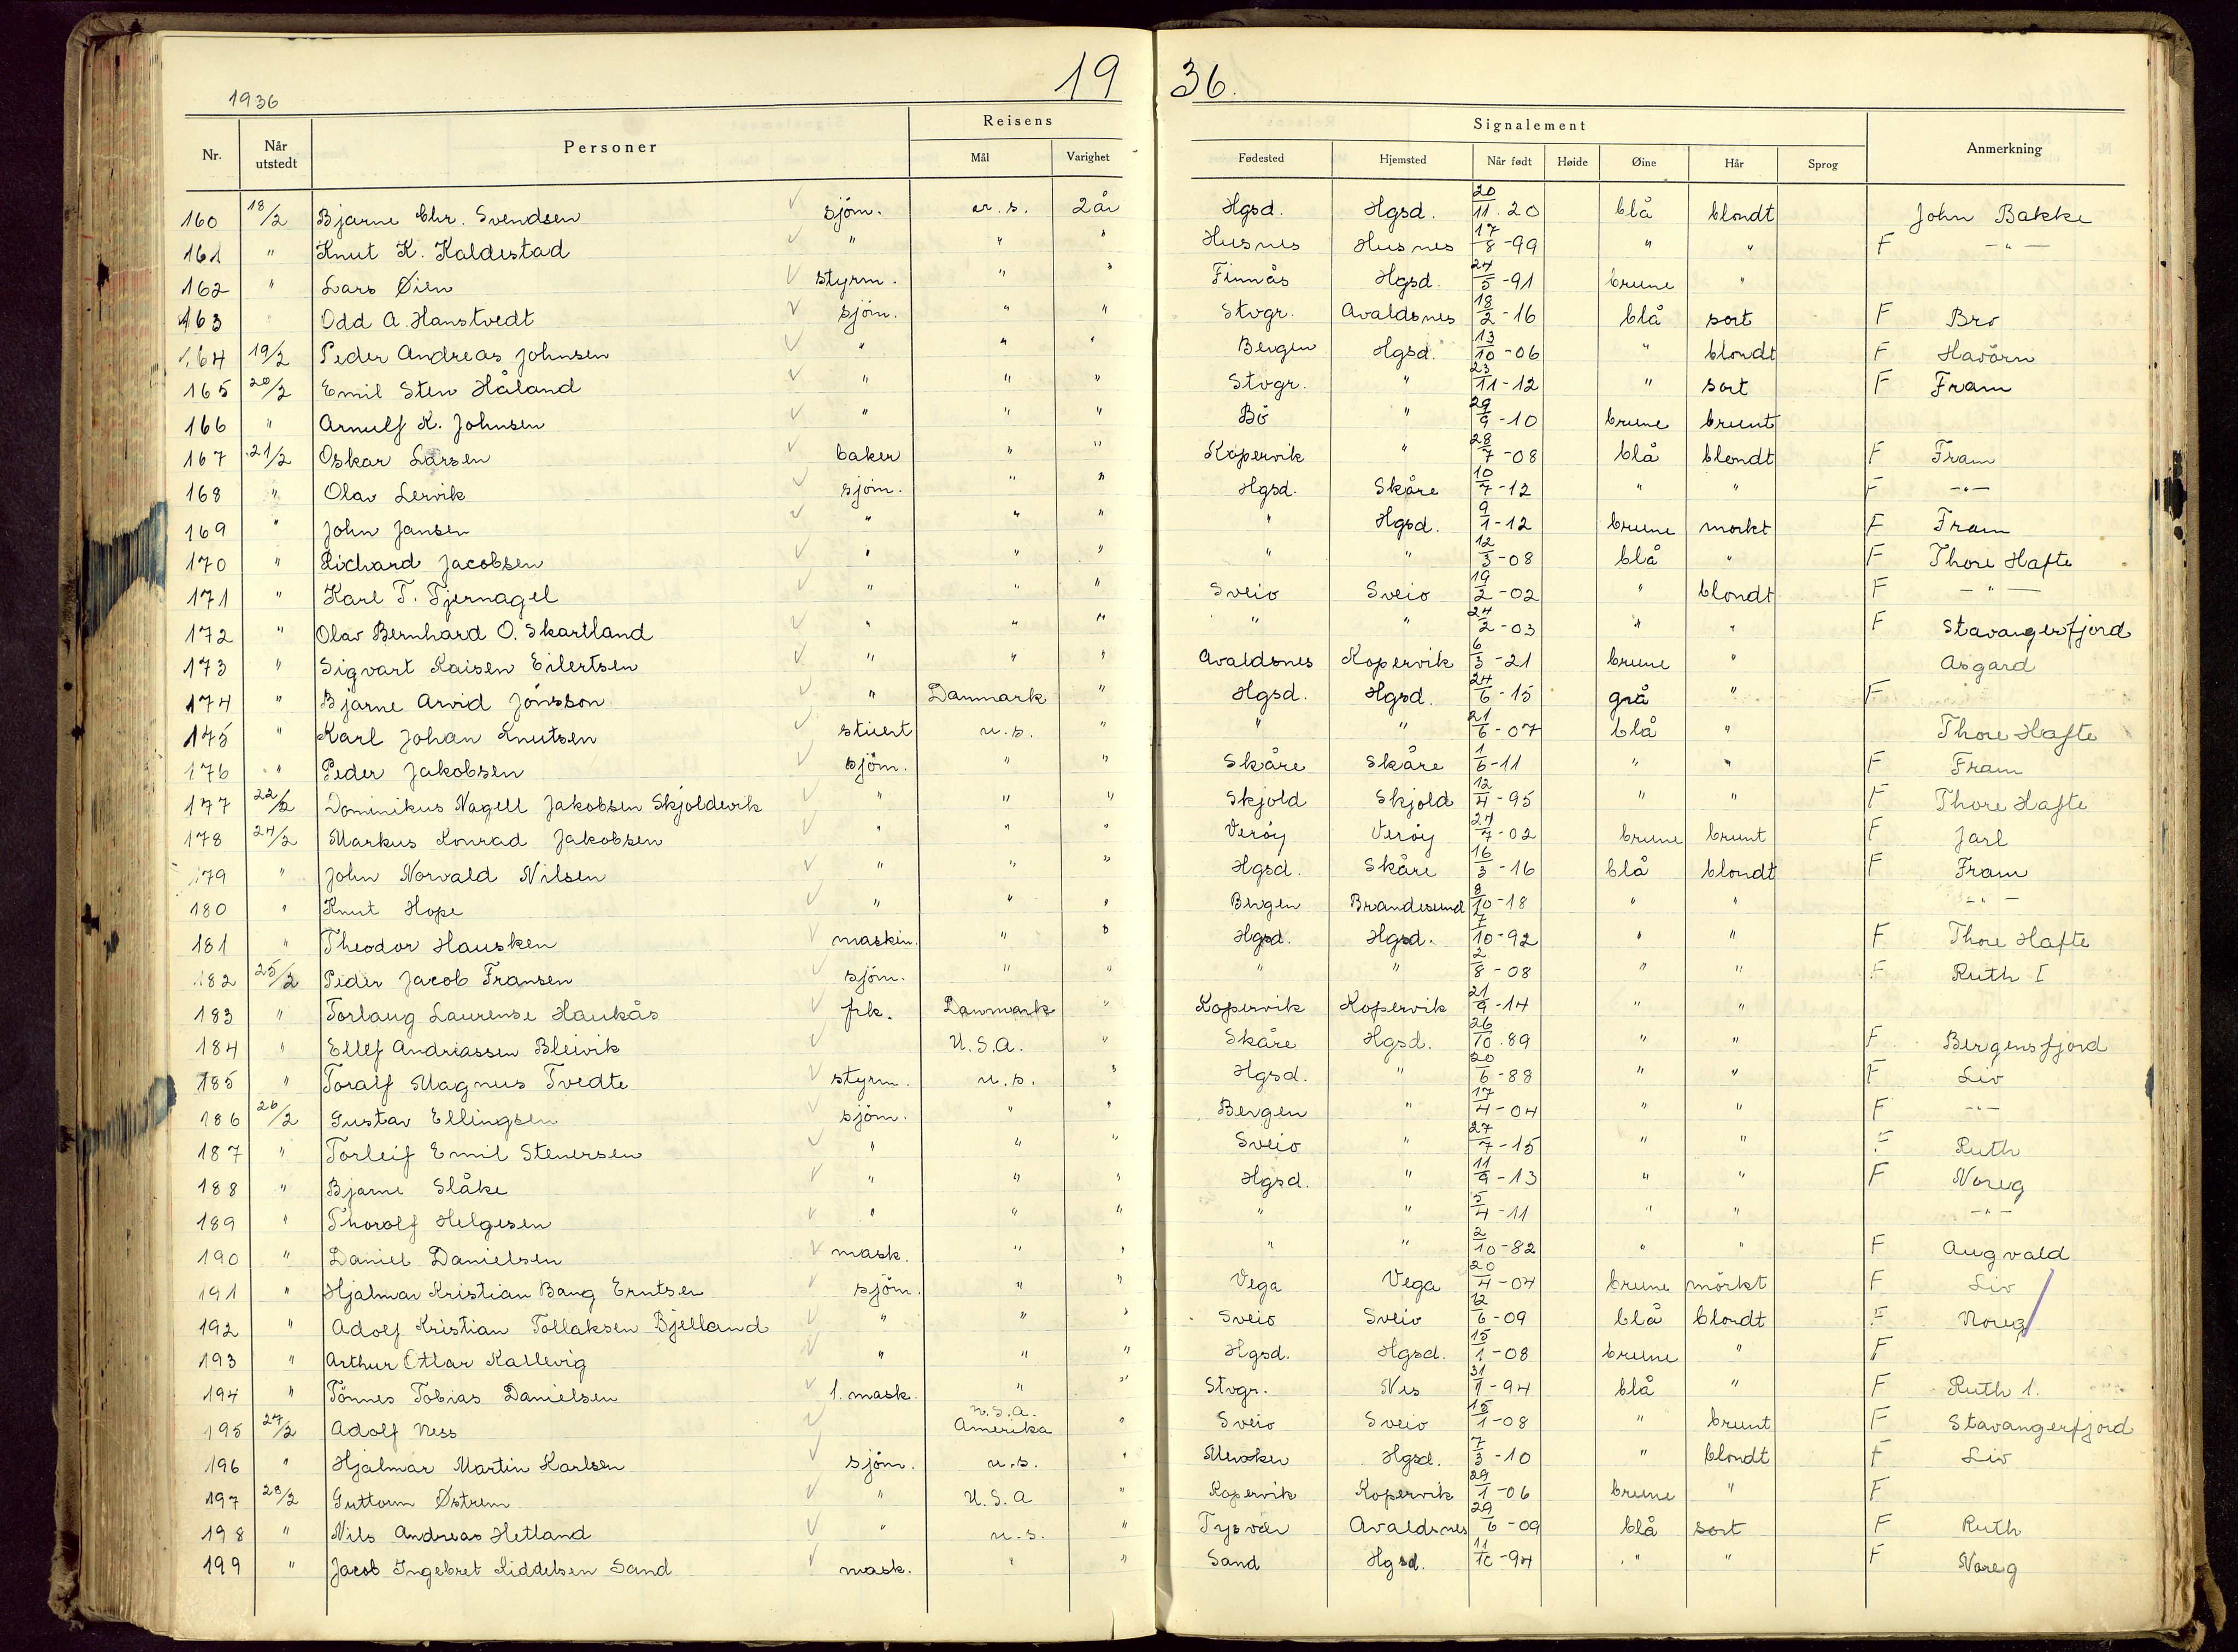 1936
19 36.
Nr. Når utstedt Personer Reisens Mål Varighet Signalement Fødested Hjemsted Når født Høide Øine Hår Sprog Anmerkning
160 18/2 Bjarne Chr. Svendsen sjöm. u.s. 2 år Hgsd. Hgsd. 20/11.20 blå blondt John Bakke
161 " Knut K. Kaldestad " " " Husnes Husnes 17/8-99 " " F -"-
162 " Lars Øien styrm. " " Finnås Hgsd. 24/5-91 brune "
163 Odd A. Hanstvedt sjöm. " " Stvgr. Avaldsnes 18/2-16 blå sort F Bro
164 19/2 Peder Andreas Johnsen " " " Bergen Hgsd. 13/10-06 " blondt F Havörn
165 20/2 Emil Sten Håland " " " Stvgr. " 23/11-12 " sort F Fram
166 " Arnulf K. Johnsen " " " Bö " 29/9-10 brune brunt
167 21/2 Oskar Larsen baker " " Kopervik " 28/7-08 blå blondt F Fram
168 " Olav Lervik sjöm. " " Hgsd. Skåre 10/7-12 " " F -"-
169 " John Jansen " " " " Hgsd. 9/1-12 brune mörkt F Fram
170 " Richard Jacobsen " " " " " 12/3-08 blå " F Thore Hafte
171 " Karl T. Tjernagel " " " Sveio Sveio 19/2-02 " blondt F -"-
172 " Olav Bernhard O. Skartland " " " " " 24/2-03 " " F Stavangerfjord
173 " Sigvart Kaisen Eilertsen " " " Avaldsnes Kopervik 6/3-21 brune " Asgard
174 " Bjarne Arvid Jönsson " Danmark " Hgsd. Hgsd. 24/6-15 grå " F
175 " Karl Johan Knutsen stuert u.s. " " " 21/6-07 blå " Thore Hafte
176 " Peder Jakobsen sjöm. " " Skåre Skåre 1/6-11 " " F Fram
177 22/2 Dominikus Nagell Jakobsen Skjoldevik " " " Skjold Skjold 12/4-95 " " F Thore Hafte
178 24/2 Markus Konrad Jakobsen " " " Veröy Veröy 24/7-02 brune brunt F Jarl
179 " John Norvald Nilsen " " " Hgsd. Skåre 16/3-16 blå blondt F Fram
180 " Knut Hope " " " Bergen Brandesund 8/10-18 " " -"-
181 " Theodor Hausken maskin. " " Hgsd. Hgsd. 7/10-92 " " F Thore Hafte
182 25/2 Peder Jacob Fransen sjöm. " " " " 2/8-08 " " F Ruth I
183 " Torlaug Laurense Haukås frk. Danmark " Kopervik Kopervik 21/9-14 " "
184 " Ellef Andreassen Bleivik U.S.A. " Skåre Hgsd. 26/10.89 " " F Bergensfjord
185 " Toralf Magnus Tvedte styrm. u.s. " Hgsd. " 20/6-88 " " F Liv
186 26/2 Gustav Ellingsen sjöm. " " Bergen " 17/4-04 " " F -"-
187 " Torleif Emil Stenersen " " " Sveio " 27/7-15 " " F Ruth
188 " Bjarne Slåke " " " Hgsd. " 11/9-13 " " F Noreg
189 " Thorolf Helgesen " " " " " 5/4-11 " " -"-
190 " Daniel Danielsen mask. " " " " 2/10-82 " " F Augvald
191 " Hjalmar Kristian Bang Erntsen sjöm. " " Vega Vega 20/4-04 brune mörkt F Liv
192 " Adolf Kristian Tollaksen Bjelland " " " Sveio Sveio 12/6-09 blå blondt F Noreg
193 " Arthur Ottar Kallevig " " " Hgsd. Hgsd. 15/1-08 brune " F
194 " Tönnes Tobias Danielsen 1. mask. " " Stvgr. Nes 31/1-94 blå " F Ruth 1.
195 27/2 Adolf Ness U.S.A. Amerika " Sveio Sveio 15/1-08 " brunt F Stavangerfjord
196 " Hjalmar Martin Karlsen sjöm. u.s. " Hgsd. 7/3-10 " blondt F Liv
197 28/2 Guttorm Østrem " U.S.A " Kopervik Kopervik 29/1-06 brune " F
198 " Nils Andreas Hetland " u.s. " Tysvär Avaldsnes 29/6-09 blå sort F Ruth
199 " Jacob Ingebret Kiddelsen Sand mask. " " Sand Hgsd. 11/10-94 " " F Noreg